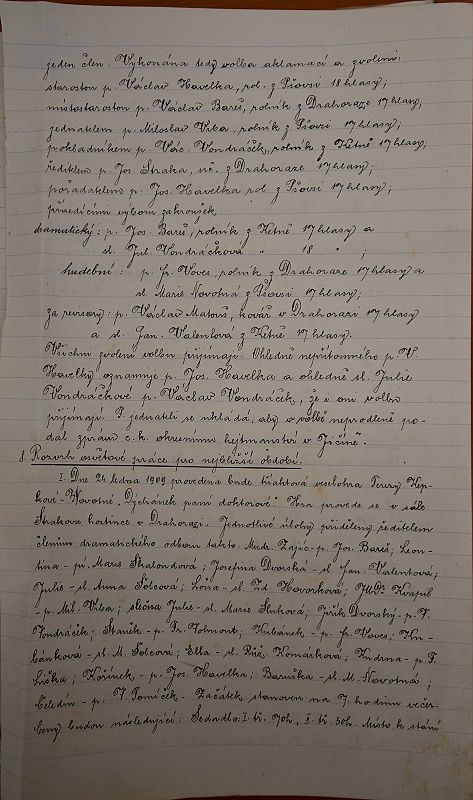 jeden člen. Vykonána tedy volba aklamací a zvoleni:
starostou p. Václav Havelka, rol. z Pšovsi 18 hlasy;
místostarostou p. Václav Bareš, rolník z Drahoraze 17 hlasy;
jednatelem p. Miloslav Vrba, rolník z Pšovsi 17 hlasy;
pokladníkem p. Vác. Vondráček, rolník z Ketně 17 hlasy;
ředitelem p. Jos. Straka, z Drahoraze 17 hlasy;
pořadatelem p. Jos. Havelka rol. z Pšovsi 17 hlasy;
přísedícími výboru zakroužek
dramatický: p. Jos. Bareš, rolník z Ketně 17 hlasy a
sl. Jul. Vondráčková " 18 " ;
hudební: p. Fr. Voves, rolník z Drahoraze 17 hlasy a
sl. Marie Novotná z Pšovsi 17 hlasy;
za revisory: p. Václav Matouš, kovář v Drahorazi 17 hlasy
a sl. Jan. Valentová z Ketně 17 hlasy.
Všichni zvolení volbu přijímají. Ohledně nepřítomného p. V.
Havelky oznamuje p. Jos. Havelka a ohledně sl. Julie
Vondráčkové p. Václav Vondráček, že i oni volbu
přijímají. P. jednateli se ukládá, aby o volbě neprodleně po-
dal zprávu c. k. okresnímu hejtmanství v Jičíně.
8. Rozvrh osvětové práce pro nejbližší období.
I. Dne 24. ledna 1909 provedena bude tříaktová veselohra Terezy
Novotné "Dýchánek paní doktorové" Hra provede se v sále
Strakova hostince v Drahorazi. Jednotlivé úlohy přiděleny ředitelem
členům dramatického odboru takto: Mudr. Zajíc - p. Jos. Bareš; Leon-
tina - p. Marie Skalondová; Josefina Dvorská - sl. Jan. Valentová;
Julie - sl. Anna Šolcová; - sl. Hovorková; JUDr. Kvapil
- p. Mil. Vrba; slečna Julie - sl. Marie; Jiřík Dvorský - p. V.
Vondráček; Staněk - p. Fr.; Kubánek - p. Fr. Voves; Ku-
bánková - sl. M. Šolcová; Ella - sl. Růž. Komárková; - p. F.
Liška; Kořínek - p. Jos. Havelka; Baruška - sl. M. Novotná;
Čeledín - p. Začátek stanoven na 7. hodinu večer.
Ceny budou následující: Sedadlo: I. tř. 70h, II. tř. 50h. Místo k stání